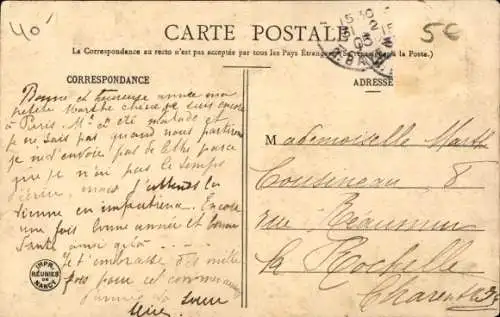 40'
5€
CARTE POSTALE
La Correspondance au recto n'est pas acceptée par tous les Pays Étrangers. (Se renseigner à la Poste.)
CORRESPONDANCE
ADRESSE
Bonne et heureuse année ma
petite Marthe chérie je suis encore
à Paris. M. a été malade et
je ne sais pas quand nous partirons
je ne t'envoie pas de lettre parce
que je n'ai pas le temps
d'écrire, mais j'attends la
tienne en impatience. Encore
une fois bonne année et bonne
Santé ainsi qu'à
Je t'embrasse mille
fois pour ce commencement
d'année ta sœur
Mademoiselle Marthe
Cousineau 8
rue Réaumur
La Rochelle
Charente Inf
IMPR.
RÉUNIES
DE
NANCY